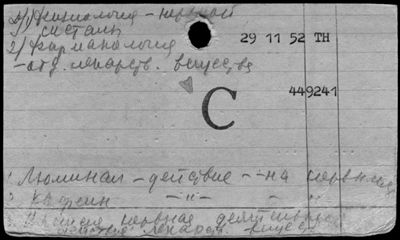 1) Физиология - нервной
системы
2) Фармакология
- отд. лекарств. веществ
29 11 52 TH
449241
С
1. Люминал - действие - на нервную
2. Кофеин -"- -
3. Высшая нервная деятельность
действие лекарств. веществ